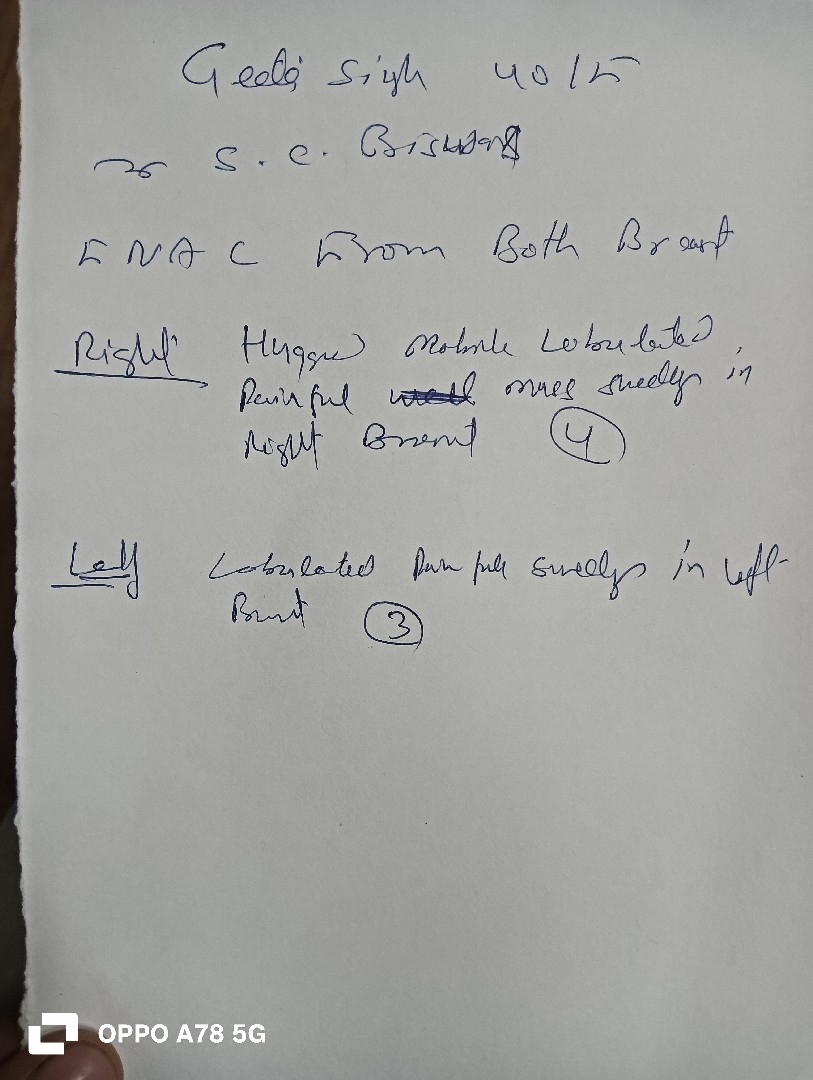 Geeta Singh 40/F
Dr S.C. Biswas
FNAC From Both Breast
Right Hugge Mobile Lobulated,
Painful mass swelling in
Right Breast 4
Left Lobulated Painful swelling in left
Breast 3
OPPO A78 5G